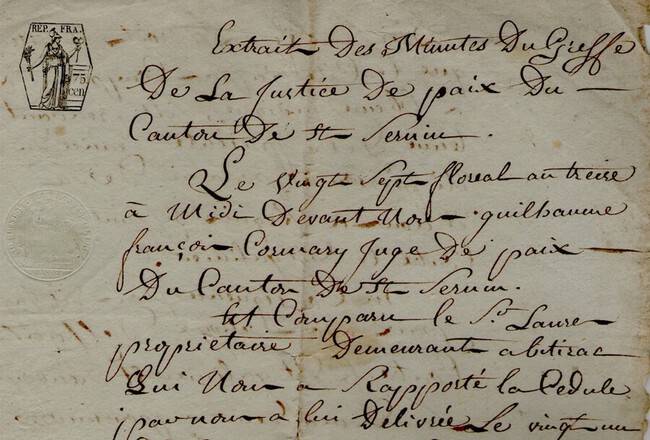 REP. FRA.
75
cen
Extrait Des Minutes Du Greffe
De La Justice De paix Du
Canton De St Sernin.
Le vingt Sept floreal an treize
à Midi Devant Nous guilhaume
françois Cormary Juge De paix
Du Canton De St Sernin.
Est Comparu le Sr Laure
propriétaire Demeurant a
Qui Nous a Rapporté la Cedule
par nous a lui Délivrée Le vingt un